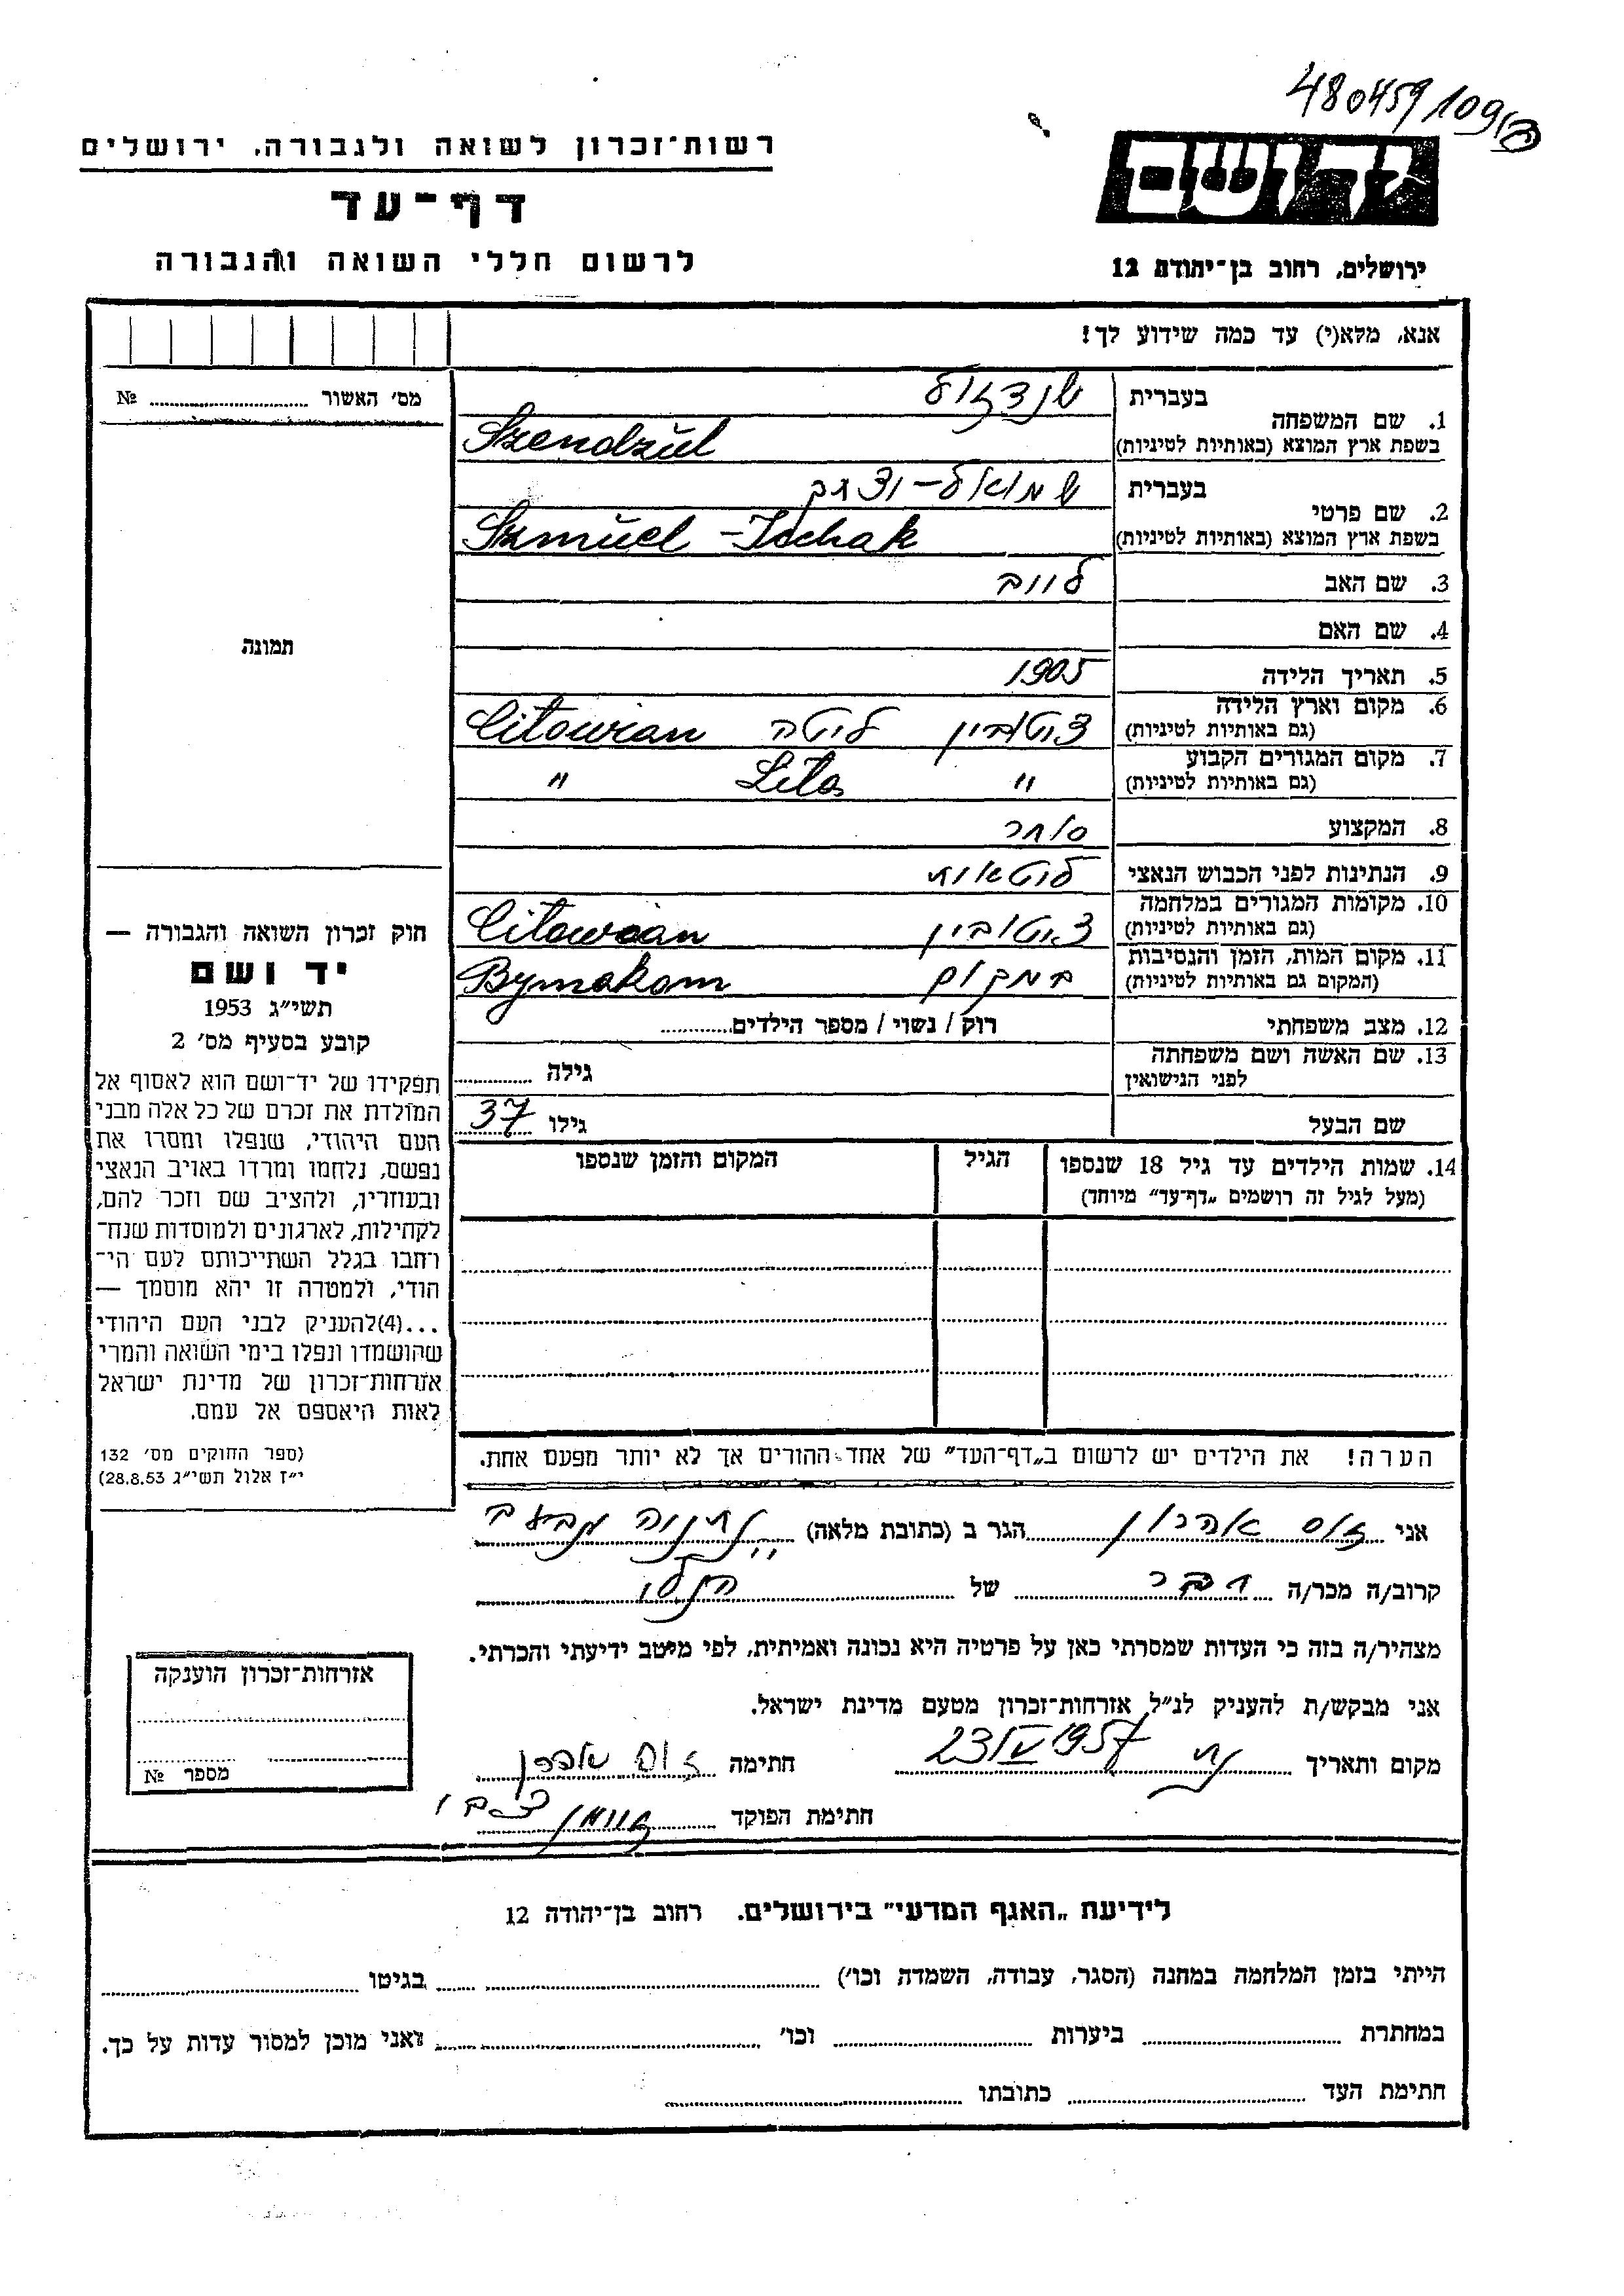 480459/109
רשות־זכרון לשואה ולגבורה, ירושלים
יד ושם
דף־עד
לרשום חללי השואה והגבורה
ירושלים, רחוב בן־יהודה 12
אנא, מלא(י) עד כמה שידוע לך!
מס׳ האשור № 
1. שם המשפחה
בעברית שנדזול
בשפת ארץ המוצא (באותיות לטיניות) Szendziul
2. שם פרטי
בעברית שמואל-יצחק
בשפת ארץ המוצא (באותיות לטיניות) Szmuel-Icchak
3. שם האב לייב
4. שם האם
תמונה
5. תאריך הלידה 1905
6. מקום וארץ הלידה ציטוביין ליטה Citowian
(גם באותיות לטיניות)
7. מקום המגורים הקבוע
(גם באותיות לטיניות) " Lita "
8. המקצוע סוחר
9. הנתינות לפני הכבוש הנאצי ליטאית
10. מקומות המגורים במלחמה
(גם באותיות לטיניות) ציטוביין Citowian
11. מקום המות, הזמן והנסיבות
(המקום גם באותיות לטיניות) במקום Bymakom
12. מצב משפחתי רוק / נשוי / מספר הילדים
13. שם האשה ושם משפחתה
לפני הנישואין גילה
שם הבעל גילו 37
14. שמות הילדים עד גיל 18 שנספו הגיל המקום והזמן שנספו
(מעל לגיל זה רושמים „דף־עד” מיוחד)
חוק זכרון השואה והגבורה —
יד ושם
תשי״ג 1953
קובע בסעיף מס׳ 2
תפקידו של יד־ושם הוא לאסוף אל
המולדת את זכרם של כל אלה מבני
העם היהודי, שנפלו ומסרו את
נפשם, נלחמו ומרדו באויב הנאצי
ובעוזריו, ולהציב שם וזכר להם,
לקהילות, לארגונים ולמוסדות שנח־
רחבו בגלל השתייכותם לעם הי־
הודי, ולמטרה זו יהא מוסמך —
...(4)להעניק לבני העם היהודי
שהושמדו ונפלו בימי השואה והמרי
אזרחות־זכרון של מדינת ישראל
לאות היאספם אל עמם.
(ספר החוקים מס׳ 132
י״ז אלול תשי״ג 28.8.53)
הערה! את הילדים יש לרשום ב„דף־העד” של אחד ההורים אך לא יותר מפעם אחת.
אני זוס אהרון הגר ב (כתובת מלאה)
קרוב/ה מכר/ה חבר של הנ"ל
מצהיר/ה בזה כי העדות שמסרתי כאן על פרטיה היא נכונה ואמיתית, לפי מיטב ידיעתי והכרתי.
אני מבקש/ת להעניק לנ״ל אזרחות־זכרון מטעם מדינת ישראל.
מקום ותאריך 23/V 1957 חתימה זוס אהרן
חתימת הפוקד
אזרחות־זכרון הוענקה
מספר №
לידיעת „האגף המדעי” בירושלים. רחוב בן־יהודה 12
הייתי בזמן המלחמה במחנה (הסגר, עבודה, השמדה וכו׳) בגיטו
במחתרת ביערות וכו׳ ואני מוכן למסור עדות על כך.
חתימת העד כתובתו